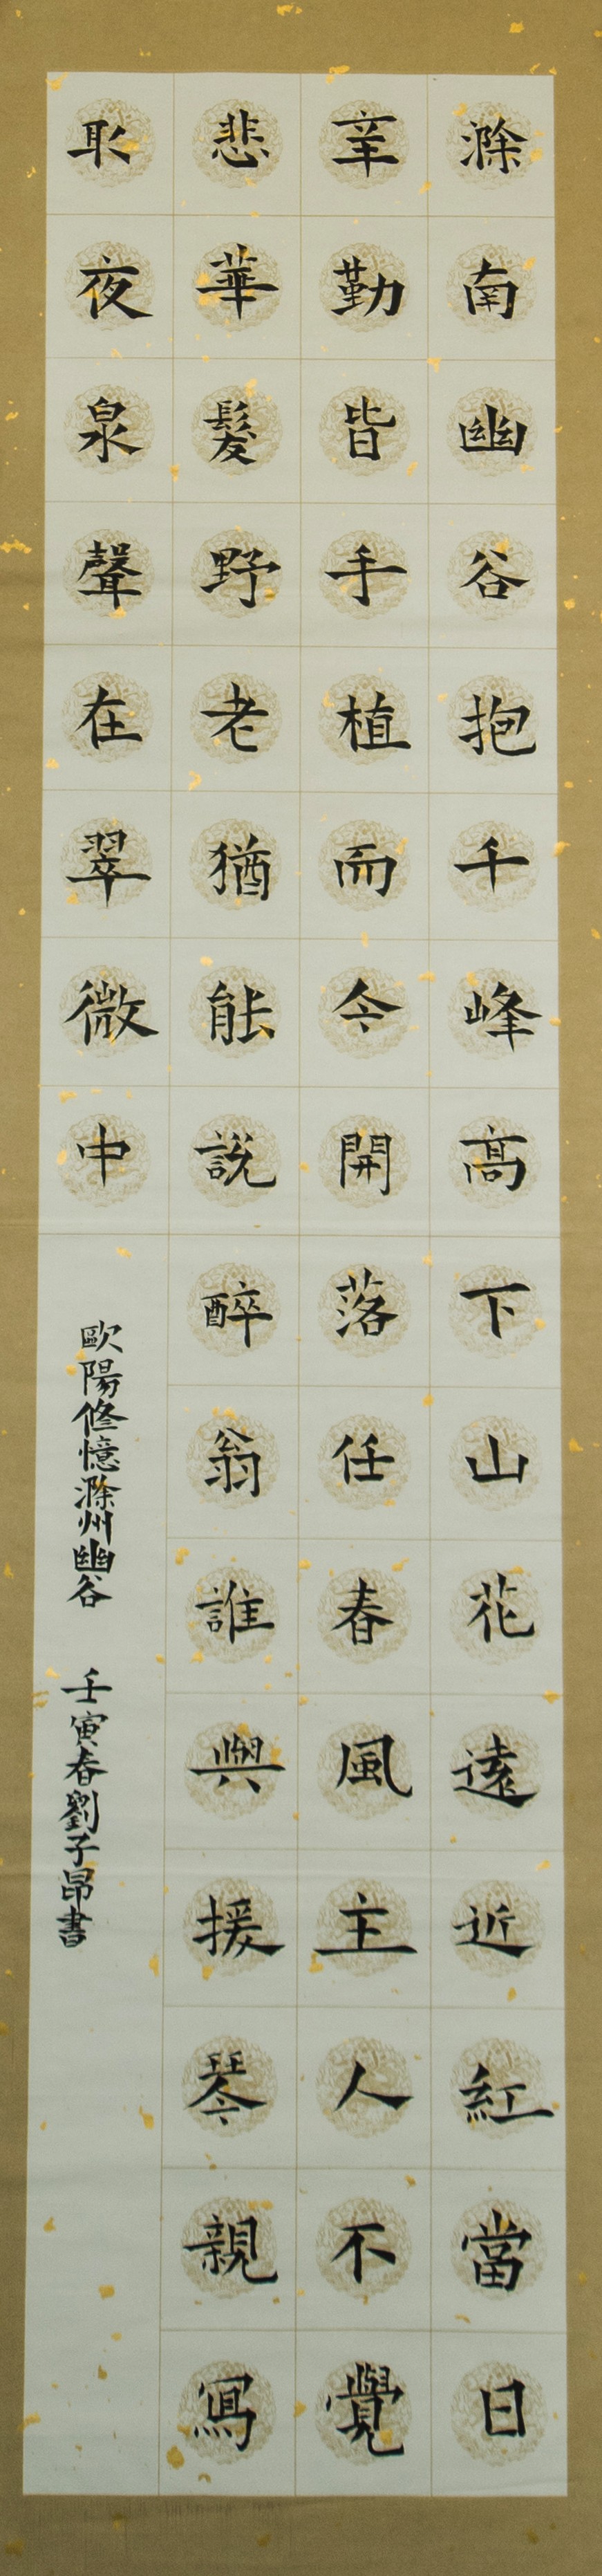 滁南幽谷抱千峰高下山花遠近紅當日
辛勤皆手植而今開落任春風主人不覺
悲華髮野老猶能說醉翁誰與援琴親寫
取夜泉聲在翠微中
歐陽修憶滁州幽谷 壬寅春劉子昂書